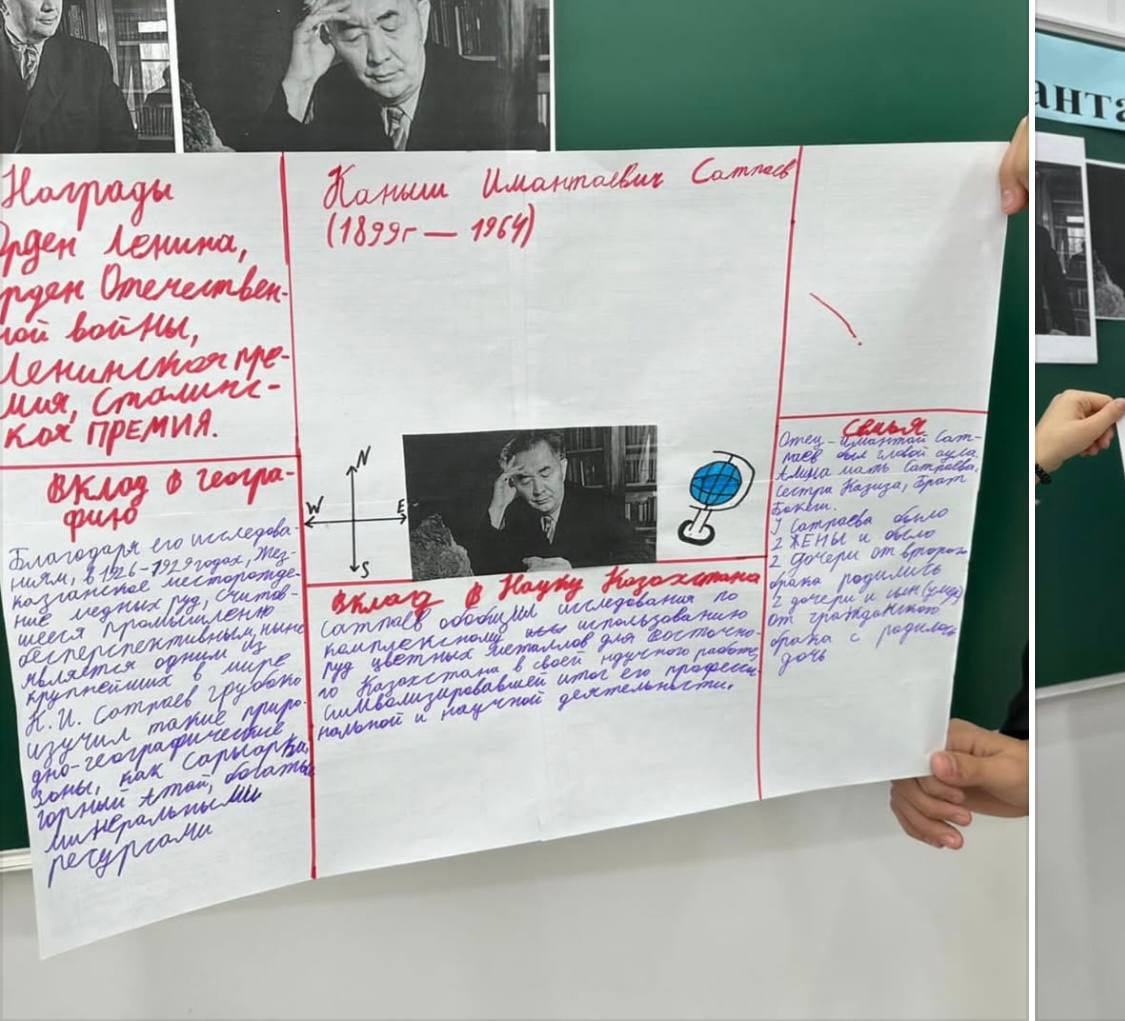 Награды
Орден Ленина,
рден Отечествен-
ной войны,
Ленинская пре-
мия, Сталинс-
кая ПРЕМИЯ.
Вклад в геогра-
фию
Благодаря его исследова-
ниям, в 1926-1929 годах, Жез-
казганское месторожде-
ние медных руд, считав-
шееся промышленно
бесперспективным, ныне
является одним из
крупнейших в мире
К. И. Сатпаев глубоко
изучил такие приро-
дно-географические
зоны, как Сарыарка,
горный Алтай, богаты
минеральными
ресурсами
Каныш Имантаевич Сатпаев
(1899г — 1964)
N
W E
S
Вклад в Науку Казахстана
Сатпаев обобщил исследования по
комплексному использованию
руд цветных металлов для Восточно-
го Казахстана в своей научной работе,
символизировавшей итог его професси
нальной и научной деятельности.
Семья
Отец - Имантай Сат-
паев был главой аула.
Алима мать Сатпаева,
сестра Казиза, брат
Бокеш.
У Сатпаева было
2 ЖЕНЫ и было
2 дочери от второго
брака родились
2 дочери и сын
от гражданского
брака с родилась
дочь
анта